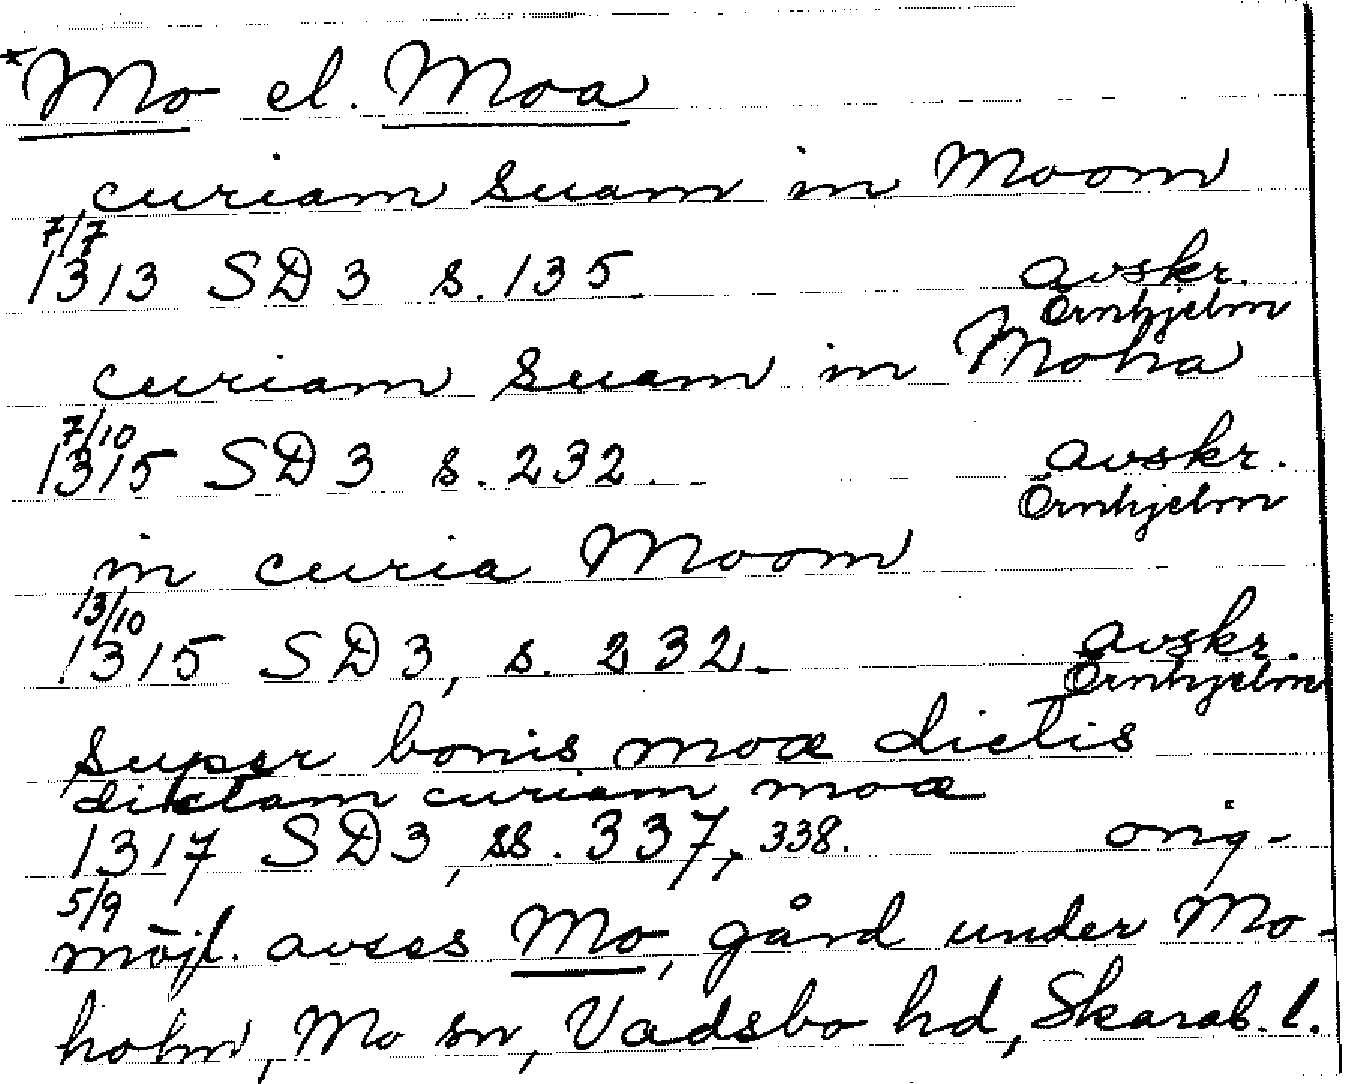 *Mo el. Moa
curiam suam in Moom
7/7
1313 SD 3 s. 135. avskr.
Örnhjelm
curiam suam in Moha
7/10
1315 SD 3 s. 232. avskr.
Örnhjelm
in curia Moom
13/10
1315 SD 3, s. 232. avskr.
Örnhjelm
super bonis moæ dictis
dictam curiam moæ
1317 SD 3, ss. 337, 338. orig.
5/9
möjl. avses Mo, gård under Mo-
holm, Mo sn, Vadsbo hd, Skarab. l.